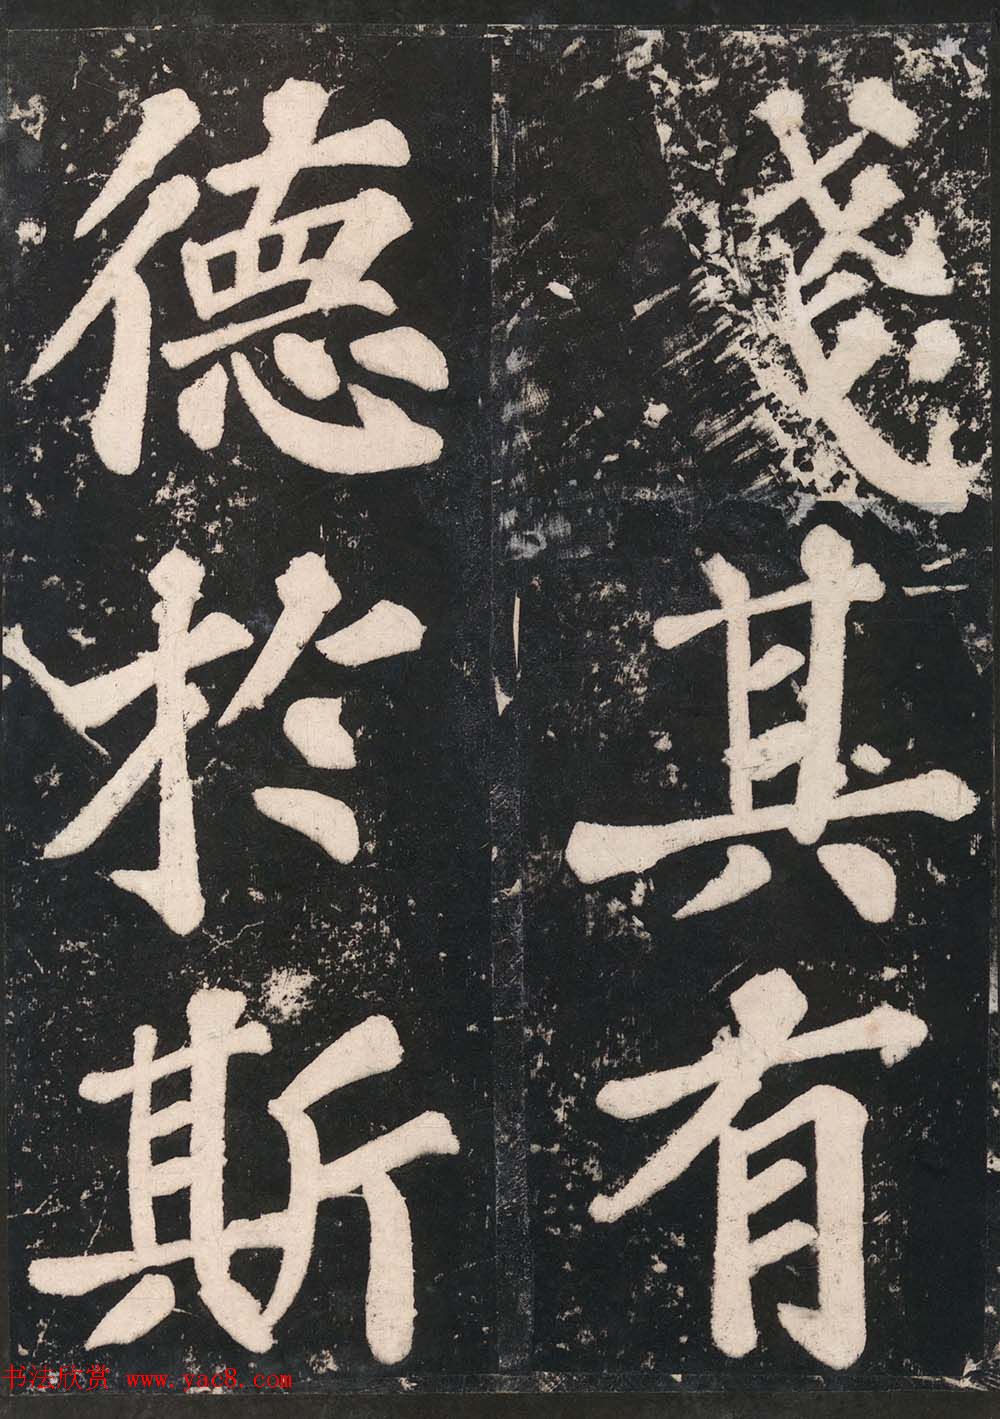 其有
德於斯
书法欣赏 www.yac8.com